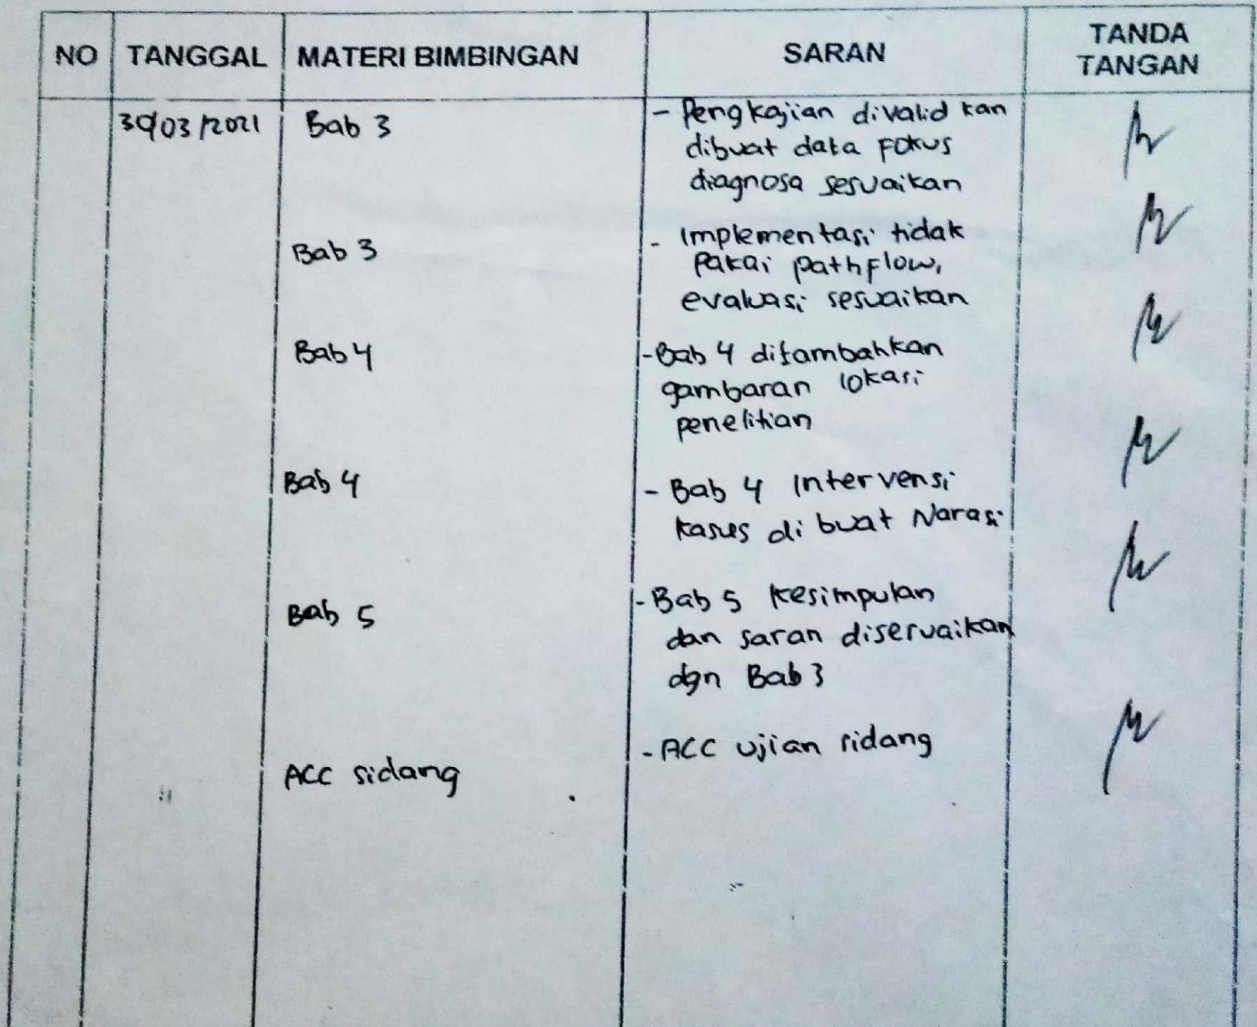 NO TANGGAL MATERI BIMBINGAN SARAN TANDA TANGAN
30/03/2021 Bab 3 - Pengkajian divalid kan
dibuat data fokus
diagnosa sesuaikan
Bab 3 - Implementasi tidak
Pakai pathflow,
evaluasi sesuaikan
Bab 4 - Bab 4 ditambahkan
gambaran lokasi
penelitian
Bab 4 - Bab 4 Intervensi
kasus di buat Narasi
Bab 5 - Bab 5 kesimpulan
dan saran disesuaikan
dgn Bab 3
ACC sidang - ACC ujian sidang